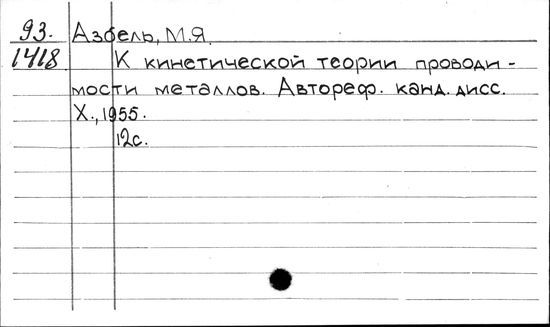 93. Азбель, М.Я.
1418 К кинетической теории проводи-
мости металлов. Автореф. канд. дисс.
Х., 1955.
12с.